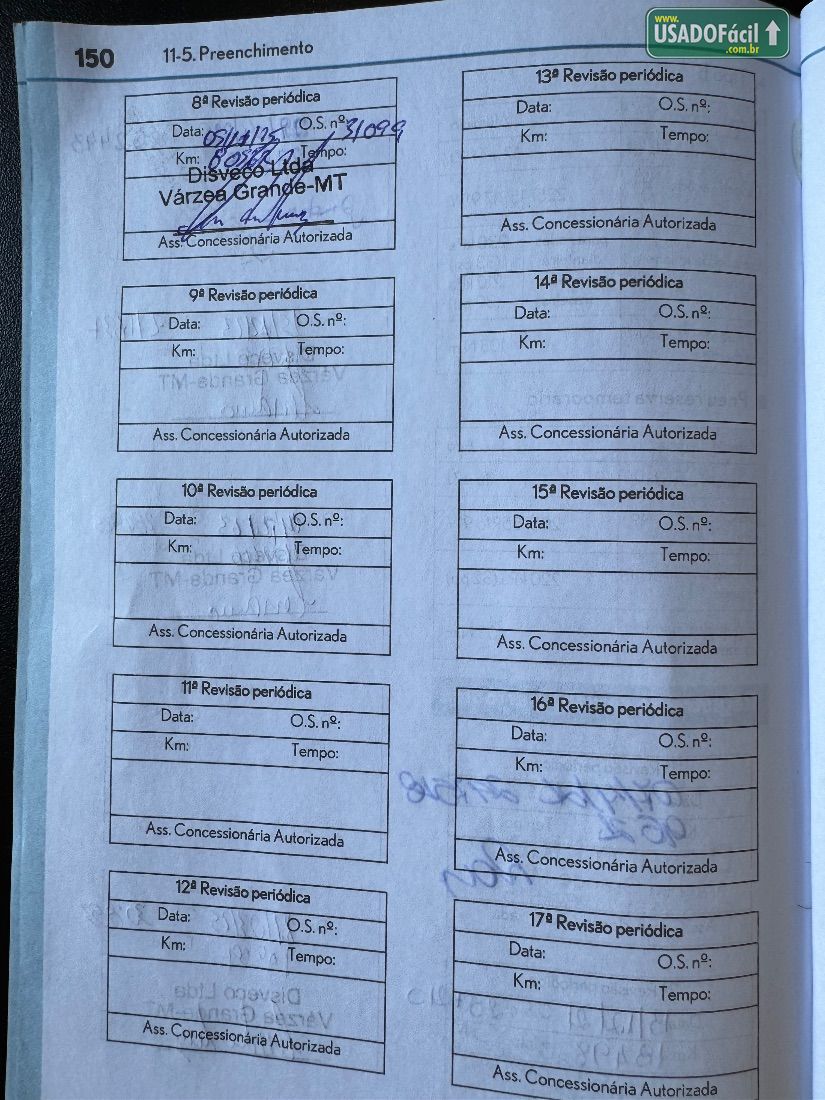 150
11-5. Preenchimento
www.
USADOFácil
.com.br
8ª Revisão periódica
Data: O.S. nº: 31099
Km: Tempo:
Disveco Ltda
Várzea Grande-MT
Ass. Concessionária Autorizada
9ª Revisão periódica
Data: O.S. nº:
Km: Tempo:
Ass. Concessionária Autorizada
10ª Revisão periódica
Data: O.S. nº:
Km: Tempo:
Ass. Concessionária Autorizada
11ª Revisão periódica
Data: O.S. nº:
Km: Tempo:
Ass. Concessionária Autorizada
12ª Revisão periódica
Data: O.S. nº:
Km: Tempo:
Ass. Concessionária Autorizada
13ª Revisão periódica
Data: O.S. nº:
Km: Tempo:
Ass. Concessionária Autorizada
14ª Revisão periódica
Data: O.S. nº:
Km: Tempo:
Ass. Concessionária Autorizada
15ª Revisão periódica
Data: O.S. nº:
Km: Tempo:
Ass. Concessionária Autorizada
16ª Revisão periódica
Data: O.S. nº:
Km: Tempo:
Ass. Concessionária Autorizada
17ª Revisão periódica
Data: O.S. nº:
Km: Tempo:
Ass. Concessionária Autorizada